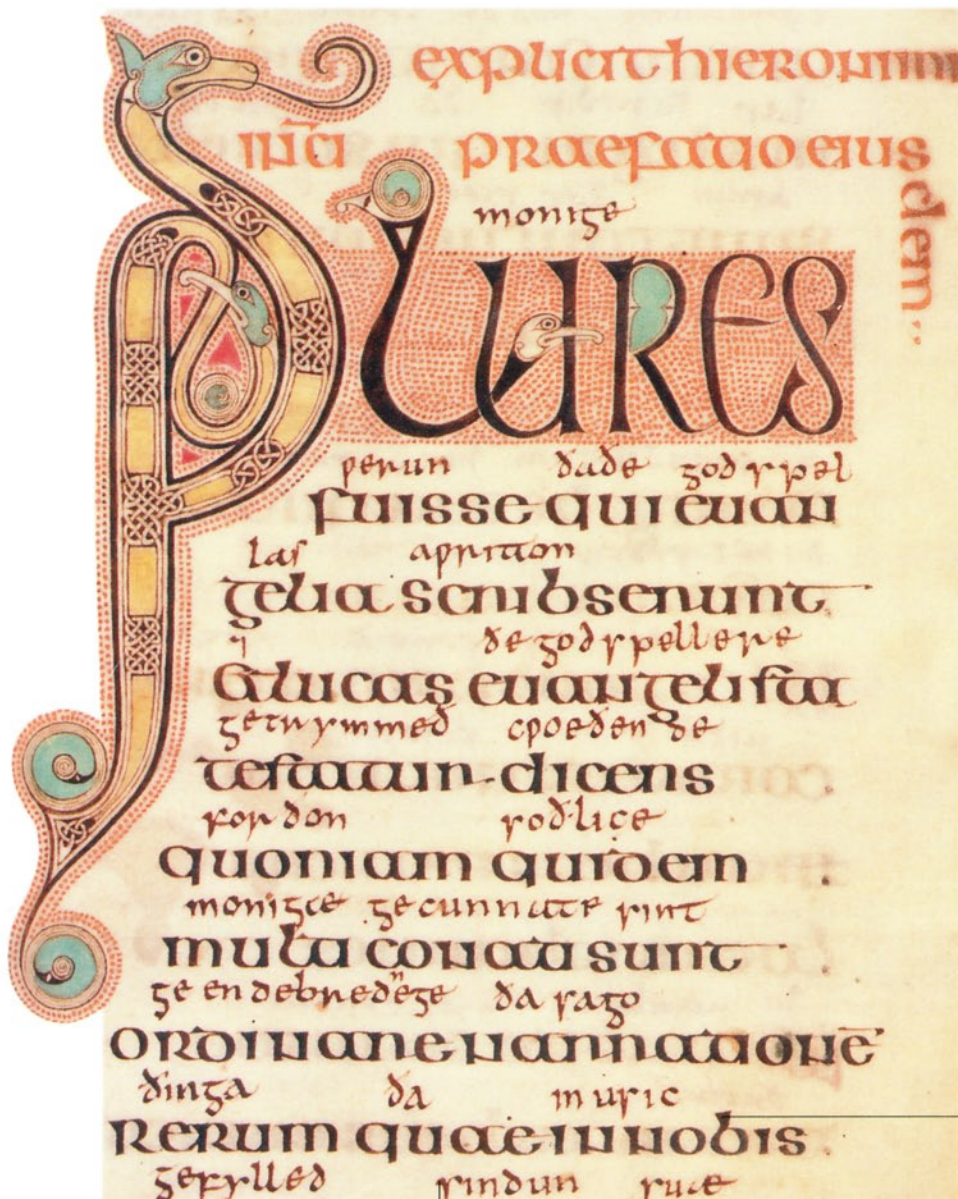 explicit hieronimi
inc̄i praefatio eius
dem
monige
PLURES
ƿerun ðaðe godspel
fuisse qui euan
las aƿritton
gelia scribserunt
⁊ ðe godspellere
et lucas euangelista
getrymmeð cƿoeðende
testatur dicens
forðon soðlice
quoniam quidem
monigæ gecunnate sint
multi conati sunt
ge endebredege ða sago
ordinare narrationē
ðinga ða in usic
rerum quae in nobis
gefylled sindun suæ